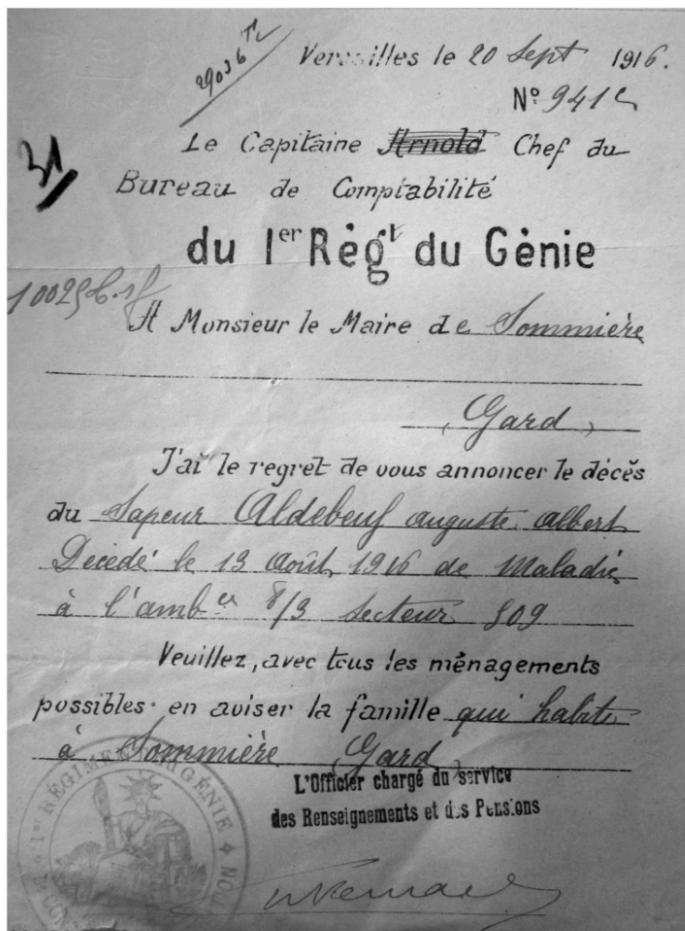 29036
Versailles le 20 Sept 1916.
N° 941
31
Le Capitaine Arnold Chef du
Bureau de Comptabilité
du 1er Règt du Gènie
A Monsieur le Maire de Sommière
(Gard)
J'ai le regret de vous annoncer le décès
du Sapeur Aldebeuf auguste albert
Décédé le 13 Août 1916 de Maladie
à l'ambce 8/3 Secteur 509
Veuillez, avec tous les ménagements
possibles en aviser la famille qui habite
à Sommière Gard
L'Officier chargé du service
des Renseignements et des Pensions
1er RÉGIMENT DU GÉNIE